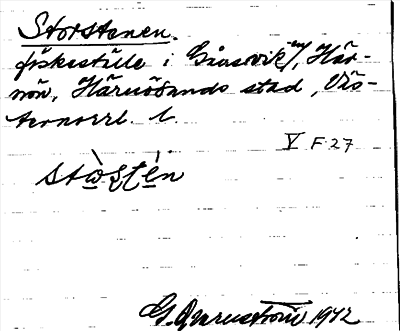 Storstenen.
fiskeställe i Giasvik-en/, Här-
nön, Härnösands stad, Väs-
ternorrl. l.
V F. 27
stòsten
G. Qvarnström 1942